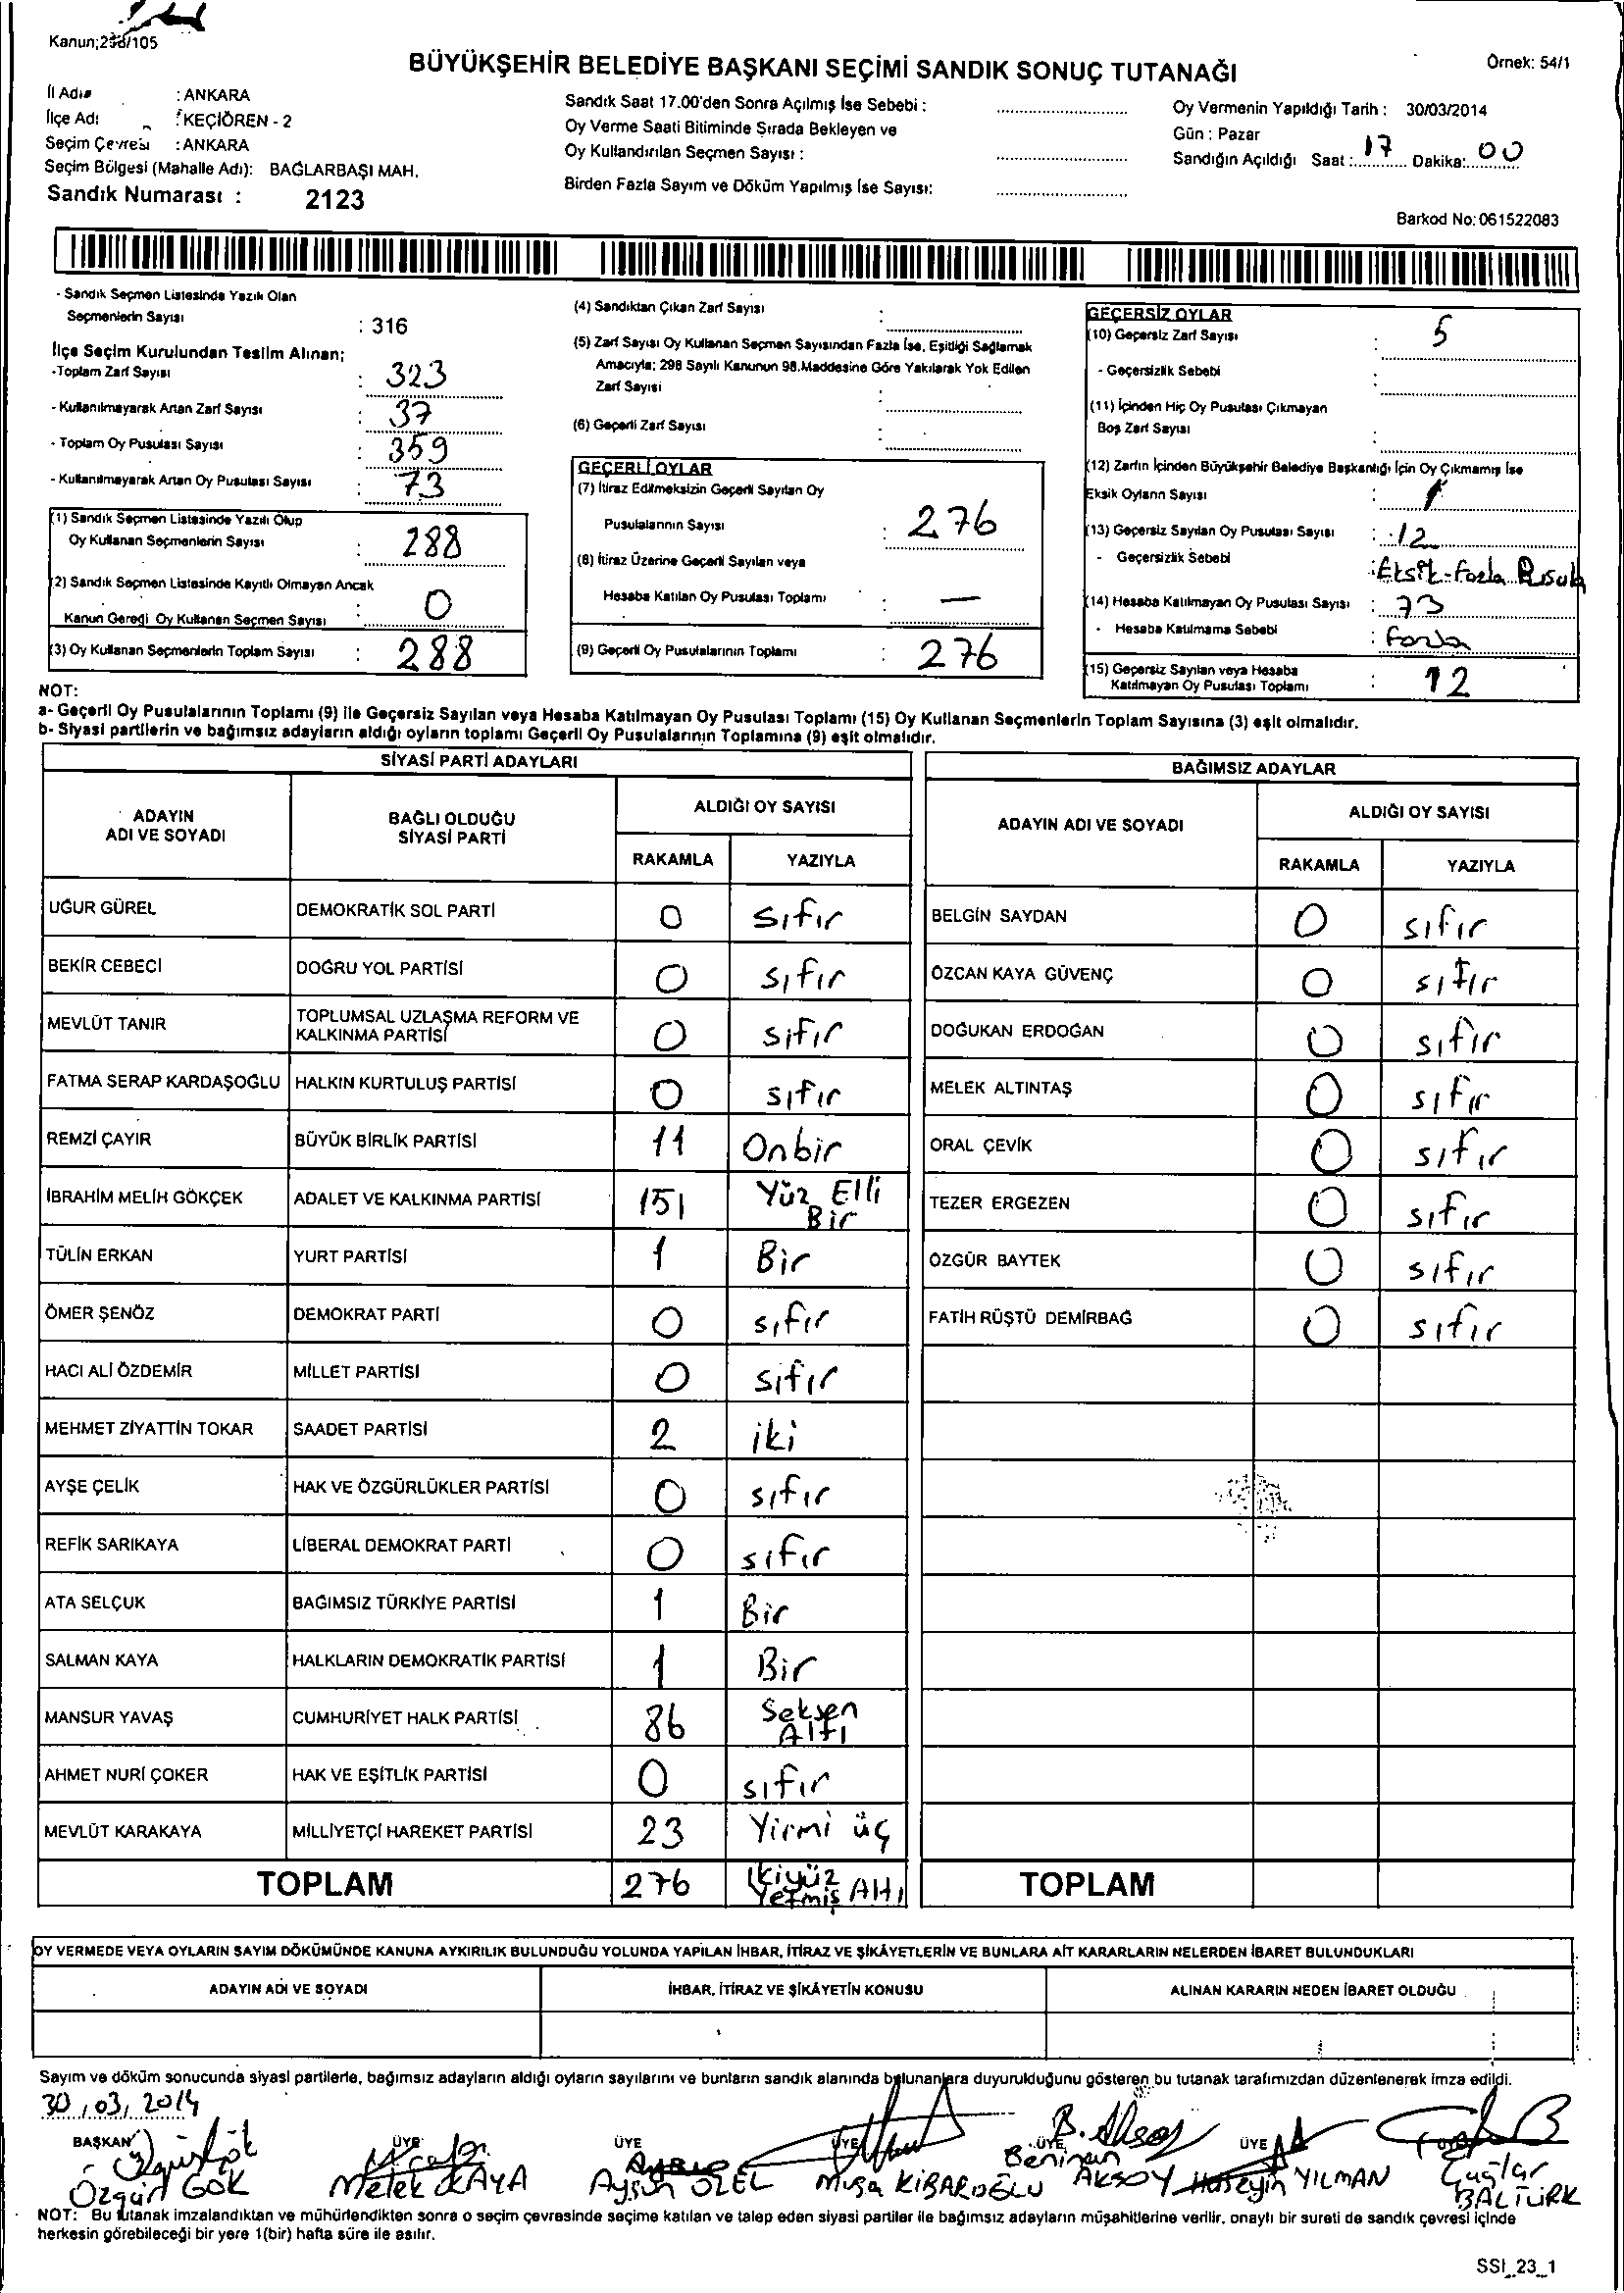 Kanun;298/105
BÜYÜKŞEHİR BELEDİYE BAŞKANI SEÇİMİ SANDIK SONUÇ TUTANAĞI
Örnek: 54/1
İl Adı : ANKARA
İlçe Adı : KEÇİÖREN - 2
Seçim Çevresi : ANKARA
Seçim Bölgesi (Mahalle Adı): BAĞLARBAŞI MAH.
Sandık Numarası : 2123
Sandık Saat 17.00'den Sonra Açılmış İse Sebebi :
Oy Verme Saati Bitiminde Sırada Bekleyen ve
Oy Kullandırılan Seçmen Sayısı :
Birden Fazla Sayım ve Döküm Yapılmış İse Sayısı:
Oy Vermenin Yapıldığı Tarih : 30/03/2014
Gün : Pazar
Sandığın Açıldığı Saat : 17 Dakika: 00
Barkod No: 061522083
- Sandık Seçmen Listesinde Yazılı Olan
Seçmenlerin Sayısı : 316
İlçe Seçim Kurulundan Teslim Alınan;
-Toplam Zarf Sayısı : 323
- Kullanılmayarak Artan Zarf Sayısı : 37
- Toplam Oy Pusulası Sayısı : 359
- Kullanılmayarak Artan Oy Pusulası Sayısı : 73
(1) Sandık Seçmen Listesinde Yazılı Olup
Oy Kullanan Seçmenlerin Sayısı : 288
(2) Sandık Seçmen Listesinde Kayıtlı Olmayan Ancak
Kanun Gereği Oy Kullanan Seçmen Sayısı : 0
(3) Oy Kullanan Seçmenlerin Toplam Sayısı : 288
(4) Sandıktan Çıkan Zarf Sayısı :
(5) Zarf Sayısı Oy Kullanan Seçmen Sayısından Fazla İse, Eşitliği Sağlamak
Amacıyla; 298 Sayılı Kanunun 98.Maddesine Göre Yakılarak Yok Edilen
Zarf Sayısı :
(6) Geçerli Zarf Sayısı :
GEÇERLİ OYLAR
(7) İtiraz Edilmeksizin Geçerli Sayılan Oy
Pusulalarının Sayısı : 276
(8) İtiraz Üzerine Geçerli Sayılan veya
Hesaba Katılan Oy Pusulası Toplamı : —
(9) Geçerli Oy Pusulalarının Toplamı : 276
GEÇERSİZ OYLAR
(10) Geçersiz Zarf Sayısı : 5
- Geçersizlik Sebebi :
(11) İçinden Hiç Oy Pusulası Çıkmayan
Boş Zarf Sayısı :
(12) Zarfın İçinden Büyükşehir Belediye Başkanlığı İçin Oy Çıkmamış İse
Eksik Oyların Sayısı : 1
(13) Geçersiz Sayılan Oy Pusulası Sayısı : 12
- Geçersizlik Sebebi : Eksik-Fazla Pusula
(14) Hesaba Katılmayan Oy Pusulası Sayısı : 73
- Hesaba Katılmama Sebebi : Fazla
(15) Geçersiz Sayılan veya Hesaba
Katılmayan Oy Pusulası Toplamı : 12
NOT:
a- Geçerli Oy Pusulalarının Toplamı (9) ile Geçersiz Sayılan veya Hesaba Katılmayan Oy Pusulası Toplamı (15) Oy Kullanan Seçmenlerin Toplam Sayısına (3) eşit olmalıdır.
b- Siyasi partilerin ve bağımsız adayların aldığı oyların toplamı Geçerli Oy Pusulalarının Toplamına (9) eşit olmalıdır.
SİYASİ PARTİ ADAYLARI
ADAYIN ADI VE SOYADI BAĞLI OLDUĞU SİYASİ PARTİ ALDIĞI OY SAYISI
RAKAMLA YAZIYLA
UĞUR GÜREL DEMOKRATİK SOL PARTİ 0 Sıfır
BEKİR CEBECİ DOĞRU YOL PARTİSİ 0 sıfır
MEVLÜT TANIR TOPLUMSAL UZLAŞMA REFORM VE KALKINMA PARTİSİ 0 sıfır
FATMA SERAP KARDAŞOĞLU HALKIN KURTULUŞ PARTİSİ 0 sıfır
REMZİ ÇAYIR BÜYÜK BİRLİK PARTİSİ 11 Onbir
İBRAHİM MELİH GÖKÇEK ADALET VE KALKINMA PARTİSİ 151 Yüz Elli Bir
TÜLİN ERKAN YURT PARTİSİ 1 Bir
ÖMER ŞENÖZ DEMOKRAT PARTİ 0 sıfır
HACI ALİ ÖZDEMİR MİLLET PARTİSİ 0 sıfır
MEHMET ZİYATTİN TOKAR SAADET PARTİSİ 2 iki
AYŞE ÇELİK HAK VE ÖZGÜRLÜKLER PARTİSİ 0 sıfır
REFİK SARIKAYA LİBERAL DEMOKRAT PARTİ 0 sıfır
ATA SELÇUK BAĞIMSIZ TÜRKİYE PARTİSİ 1 Bir
SALMAN KAYA HALKLARIN DEMOKRATİK PARTİSİ 1 Bir
MANSUR YAVAŞ CUMHURİYET HALK PARTİSİ 86 Seksen Altı
AHMET NURİ ÇOKER HAK VE EŞİTLİK PARTİSİ 0 sıfır
MEVLÜT KARAKAYA MİLLİYETÇİ HAREKET PARTİSİ 23 Yirmi üç
TOPLAM 276 İkiyüz Yetmiş Altı
BAĞIMSIZ ADAYLAR
ADAYIN ADI VE SOYADI ALDIĞI OY SAYISI
RAKAMLA YAZIYLA
BELGİN SAYDAN 0 sıfır
ÖZCAN KAYA GÜVENÇ 0 sıfır
DOĞUKAN ERDOĞAN 0 sıfır
MELEK ALTINTAŞ 0 sıfır
ORAL ÇEVİK 0 sıfır
TEZER ERGEZEN 0 sıfır
ÖZGÜR BAYTEK 0 sıfır
FATİH RÜŞTÜ DEMİRBAĞ 0 sıfır
TOPLAM
OY VERMEDE VEYA OYLARIN SAYIM DÖKÜMÜNDE KANUNA AYKIRILIK BULUNDUĞU YOLUNDA YAPILAN İHBAR, İTİRAZ VE ŞİKÂYETLERİN VE BUNLARA AİT KARARLARIN NELERDEN İBARET BULUNDUKLARI
ADAYIN ADI VE SOYADI İHBAR, İTİRAZ VE ŞİKÂYETİN KONUSU ALINAN KARARIN NEDEN İBARET OLDUĞU
Sayım ve döküm sonucunda siyasi partilerle, bağımsız adayların aldığı oyların sayılarını ve bunların sandık alanında bulunanlara duyurulduğunu gösteren bu tutanak tarafımızdan düzenlenerek imza edildi.
30/03/2014
BAŞKAN ÜYE ÜYE ÜYE ÜYE ÜYE ÜYE
B. Aksoy
Özgür GÖK Melek KAYA Aysun ÖZEL Musa KİBAROĞLU AKSOY Hüseyin YILMAN Çağlar BALTÜRK
NOT: Bu tutanak imzalandıktan ve mühürlendikten sonra o seçim çevresinde seçime katılan ve talep eden siyasi partiler ile bağımsız adayların müşahitlerine verilir, onaylı bir sureti de sandık çevresi içinde
herkesin görebileceği bir yere 1(bir) hafta süre ile asılır.
SSI_23_1